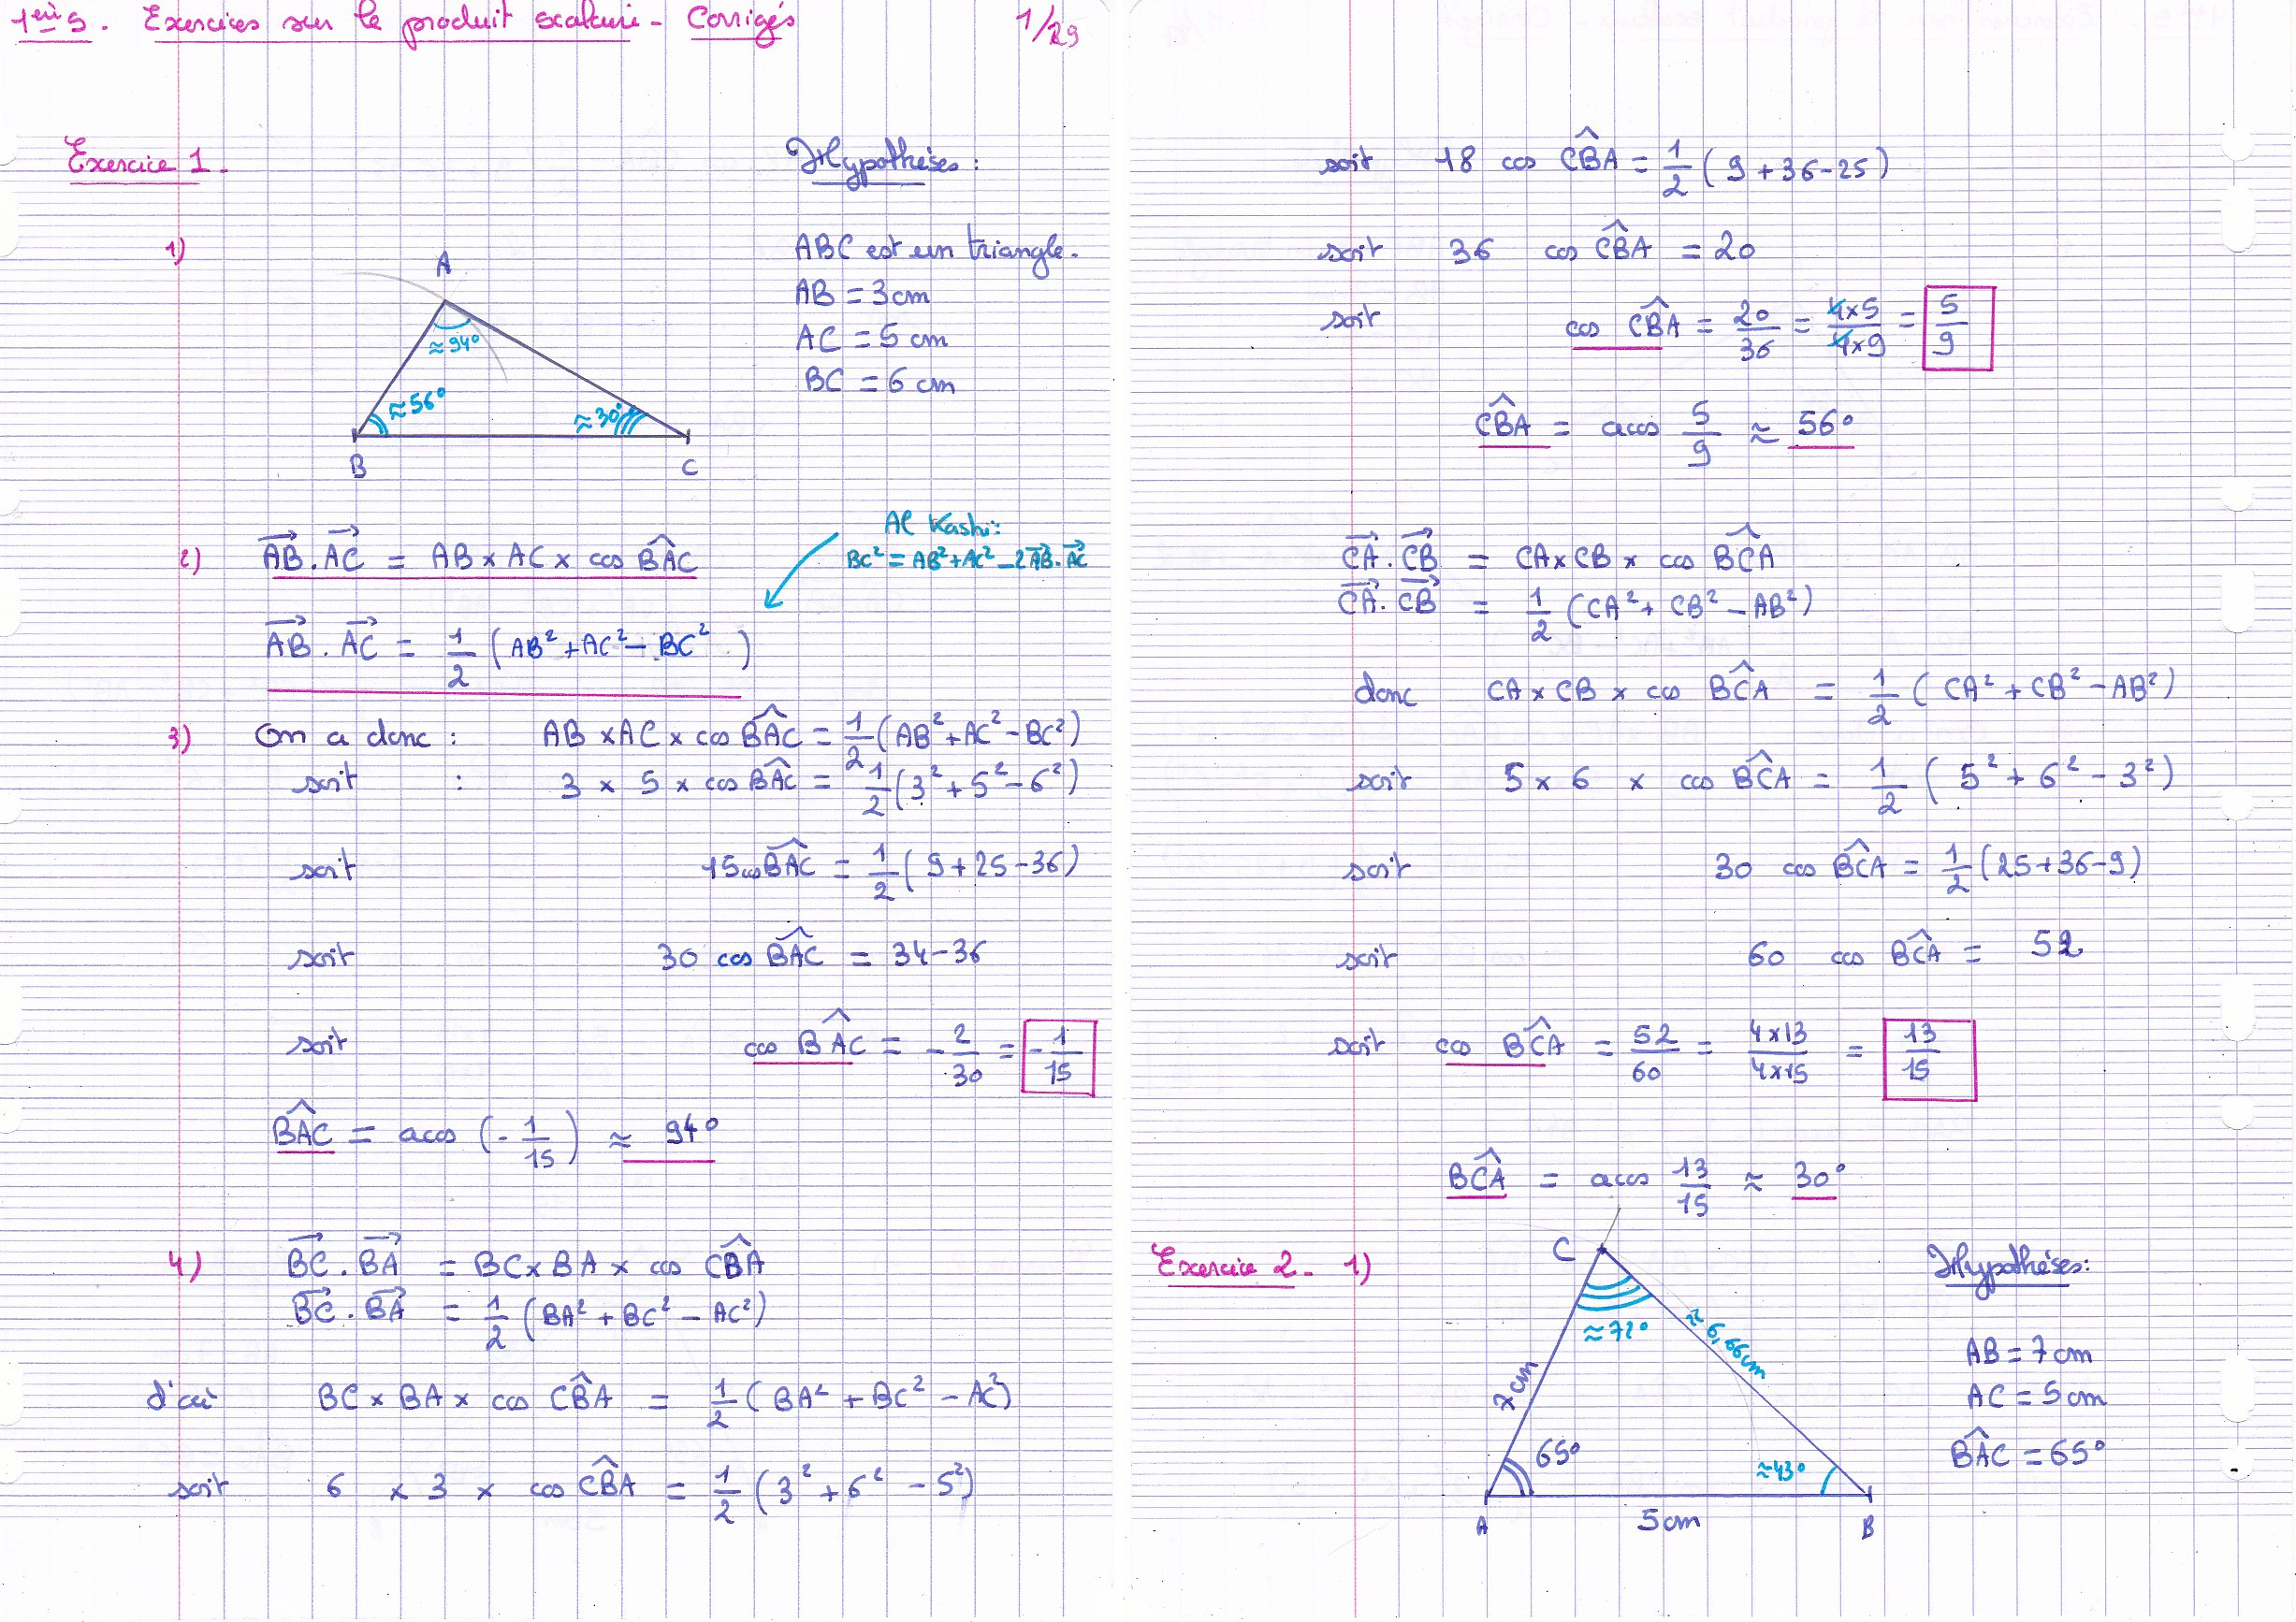 1ère S. Exercices sur le produit scalaire - Corrigés 1/29
Exercice 1.
Hypothèses :
1)
ABC est un triangle.
AB = 3 cm
AC = 5 cm
BC = 6 cm
A
≈ 94°
≈ 56°
≈ 30°
B
C
Al Kashi :
BC² = AB² + AC² - 2 AB⃗ . AC⃗
2) AB⃗ . AC⃗ = AB × AC × cos B͡AC
AB⃗ . AC⃗ = 1/2 ( AB² + AC² - BC² )
3) On a donc : AB × AC × cos B͡AC = 1/2 ( AB² + AC² - BC² )
soit : 3 × 5 × cos B͡AC = 1/2 ( 3² + 5² - 6² )
soit 15 cos B͡AC = 1/2 ( 9 + 25 - 36 )
soit 30 cos B͡AC = 34 - 36
soit cos B͡AC = - 2/30 = - 1/15
B͡AC = acos ( - 1/15 ) ≈ 94°
4) BC⃗ . BA⃗ = BC × BA × cos C͡BA
BC⃗ . BA⃗ = 1/2 ( BA² + BC² - AC² )
d'où BC × BA × cos C͡BA = 1/2 ( BA² + BC² - AC² )
soit 6 × 3 × cos C͡BA = 1/2 ( 3² + 6² - 5² )
soit 18 cos C͡BA = 1/2 ( 9 + 36 - 25 )
soit 36 cos C͡BA = 20
soit cos C͡BA = 20/36 = 4×5/4×9 = 5/9
C͡BA = acos 5/9 ≈ 56°
CA⃗ . CB⃗ = CA × CB × cos B͡CA
CA⃗ . CB⃗ = 1/2 ( CA² + CB² - AB² )
donc CA × CB × cos B͡CA = 1/2 ( CA² + CB² - AB² )
soit 5 × 6 × cos B͡CA = 1/2 ( 5² + 6² - 3² )
soit 30 cos B͡CA = 1/2 ( 25 + 36 - 9 )
soit 60 cos B͡CA = 52
soit cos B͡CA = 52/60 = 4×13/4×15 = 13/15
B͡CA = acos 13/15 ≈ 30°
Exercice 2 - 1)
Hypothèses :
AB = 7 cm
AC = 5 cm
B͡AC = 65°
C
≈ 72°
≈ 6,66 cm
7 cm
65°
≈ 43°
A
5 cm
B